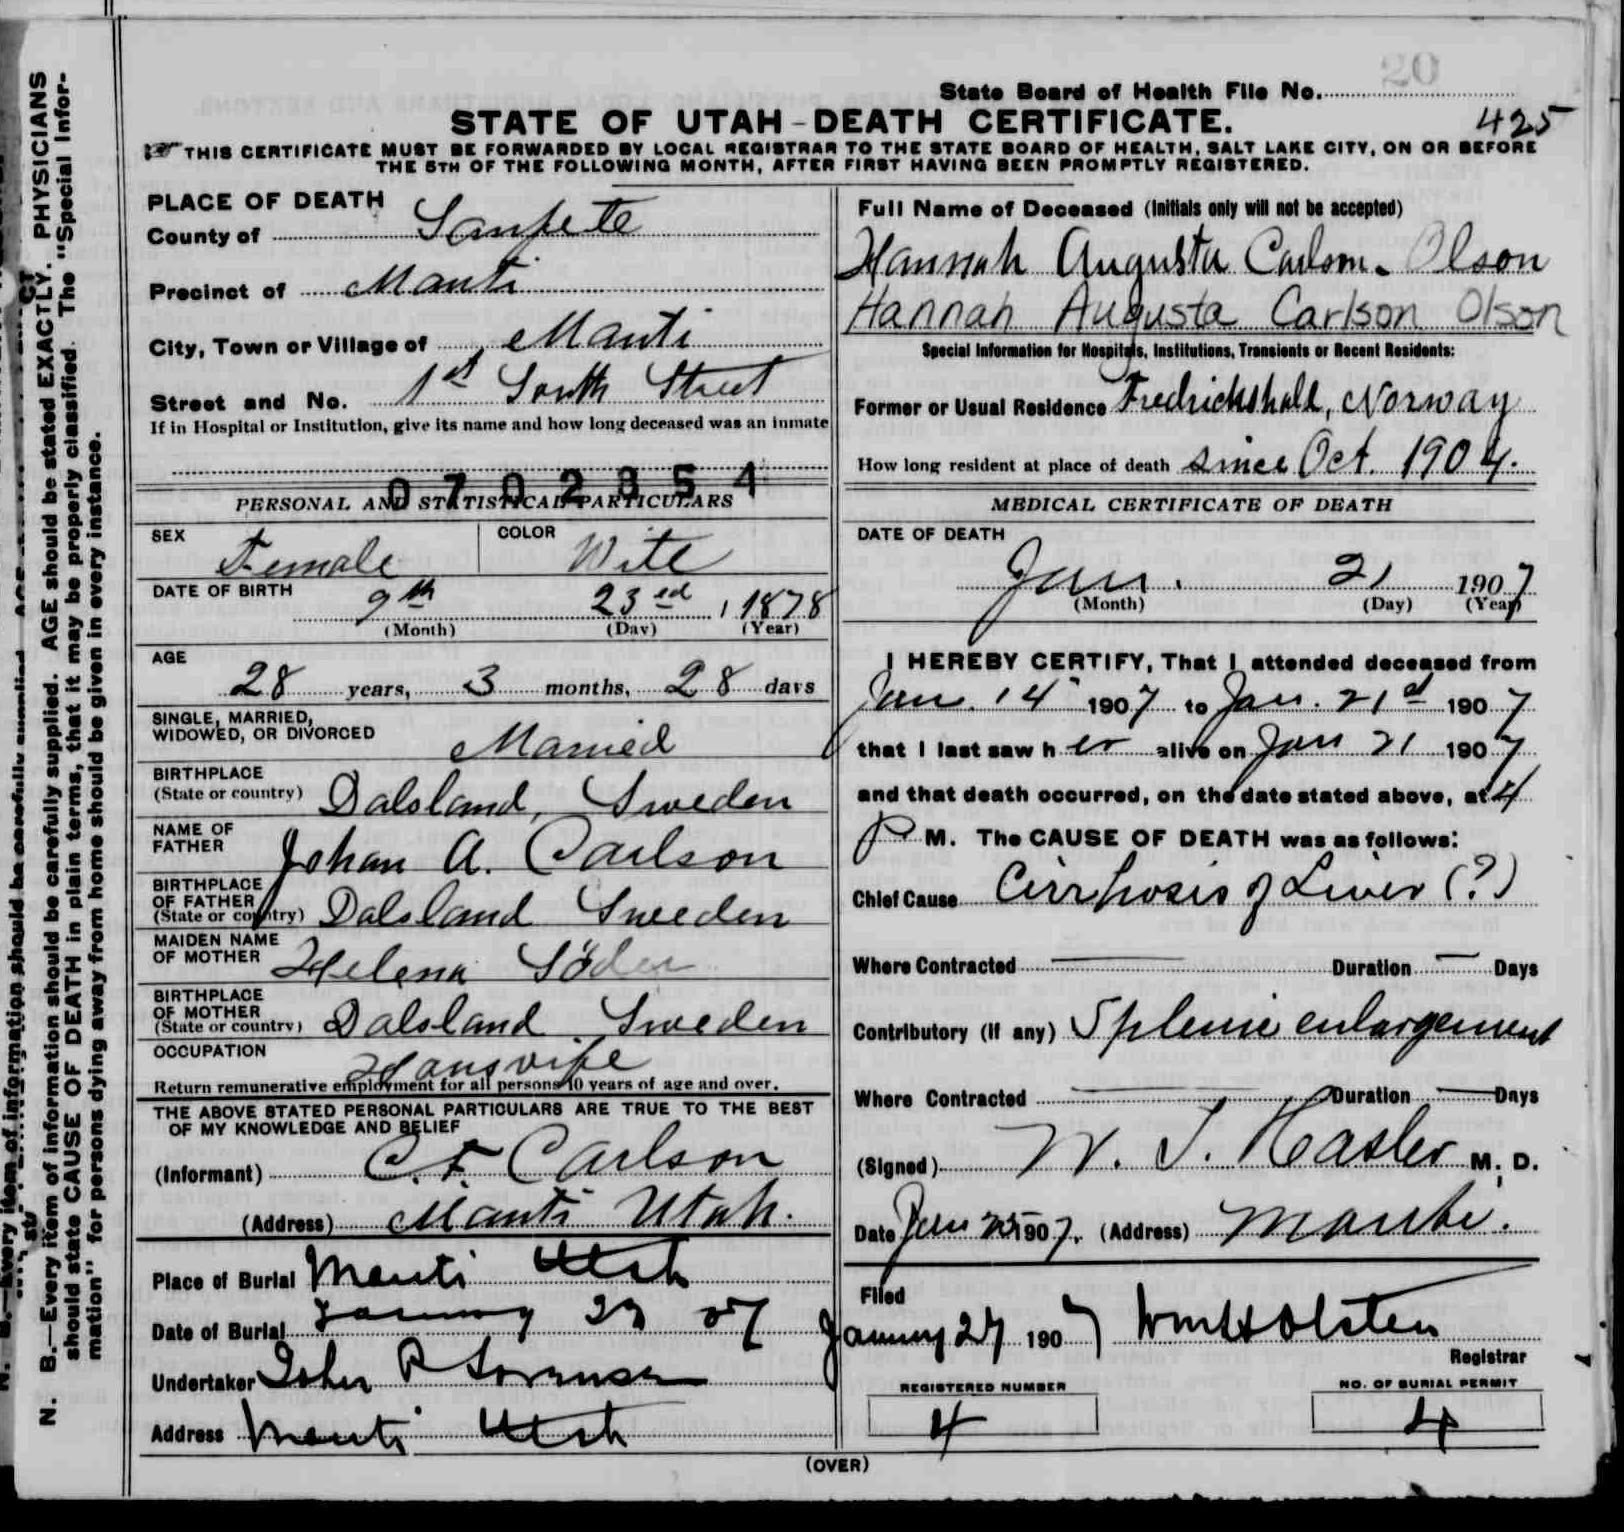 20
State Board of Health File No.
425
STATE OF UTAH-DEATH CERTIFICATE.
THIS CERTIFICATE MUST BE FORWARDED BY LOCAL REGISTRAR TO THE STATE BOARD OF HEALTH, SALT LAKE CITY, ON OR BEFORE
THE 5TH OF THE FOLLOWING MONTH, AFTER FIRST HAVING BEEN PROMPTLY REGISTERED.
N. B.—Every item of information should be carefully supplied. AGE should be stated EXACTLY. PHYSICIANS
should state CAUSE OF DEATH in plain terms, that it may be properly classified. The "Special Infor-
mation" for persons dying away from home should be given in every instance.
PLACE OF DEATH
County of Sanpete
Precinct of Manti
City, Town or Village of Manti
Street and No. 1st South Street
If in Hospital or Institution, give its name and how long deceased was an inmate
0702354
PERSONAL AND STATISTICAL PARTICULARS
SEX Female COLOR Wite
DATE OF BIRTH 9th 23ed, 1878
(Month) (Day) (Year)
AGE
28 years, 3 months, 28 days
SINGLE, MARRIED,
WIDOWED, OR DIVORCED Married
BIRTHPLACE
(State or country) Dalsland, Sweden
NAME OF
FATHER Johan A. Carlson
BIRTHPLACE
OF FATHER
(State or country) Dalsland Sweden
MAIDEN NAME
OF MOTHER Helena Söder
BIRTHPLACE
OF MOTHER
(State or country) Dalsland Sweden
OCCUPATION Hansvife
Return remunerative employment for all persons 10 years of age and over.
THE ABOVE STATED PERSONAL PARTICULARS ARE TRUE TO THE BEST
OF MY KNOWLEDGE AND BELIEF
(Informant) C. F. Carlson
(Address) Manti Utah.
Place of Burial Manti Utah
Date of Burial January 23 07
Undertaker John P Sorensen
Address Manti Utah
Full Name of Deceased (Initials only will not be accepted)
Hannah Augusta Carlson. Olson
Hannah Augusta Carlson Olson
Special Information for Hospitals, Institutions, Transients or Recent Residents:
Former or Usual Residence Fredrickshall, Norway
How long resident at place of death since Oct. 1904.
MEDICAL CERTIFICATE OF DEATH
DATE OF DEATH
Jan. 21 1907
(Month) (Day) (Year)
I HEREBY CERTIFY, That I attended deceased from
Jan. 14 1907 to Jan. 21st 1907
that I last saw her alive on Jan 21 1907
and that death occurred, on the date stated above, at 4
P M. The CAUSE OF DEATH was as follows:
Chief Cause Cirrhosis of Liver (?)
Where Contracted — Duration — Days
Contributory (if any) Splenic enlargement
Where Contracted — Duration — Days
(Signed) W. T. Hasler M. D.
Date Jan 25 1907. (Address) Manti.
Filed
January 27 1907 Wm H Olsten
Registrar
REGISTERED NUMBER
4
NO. OF BURIAL PERMIT
4
(OVER)